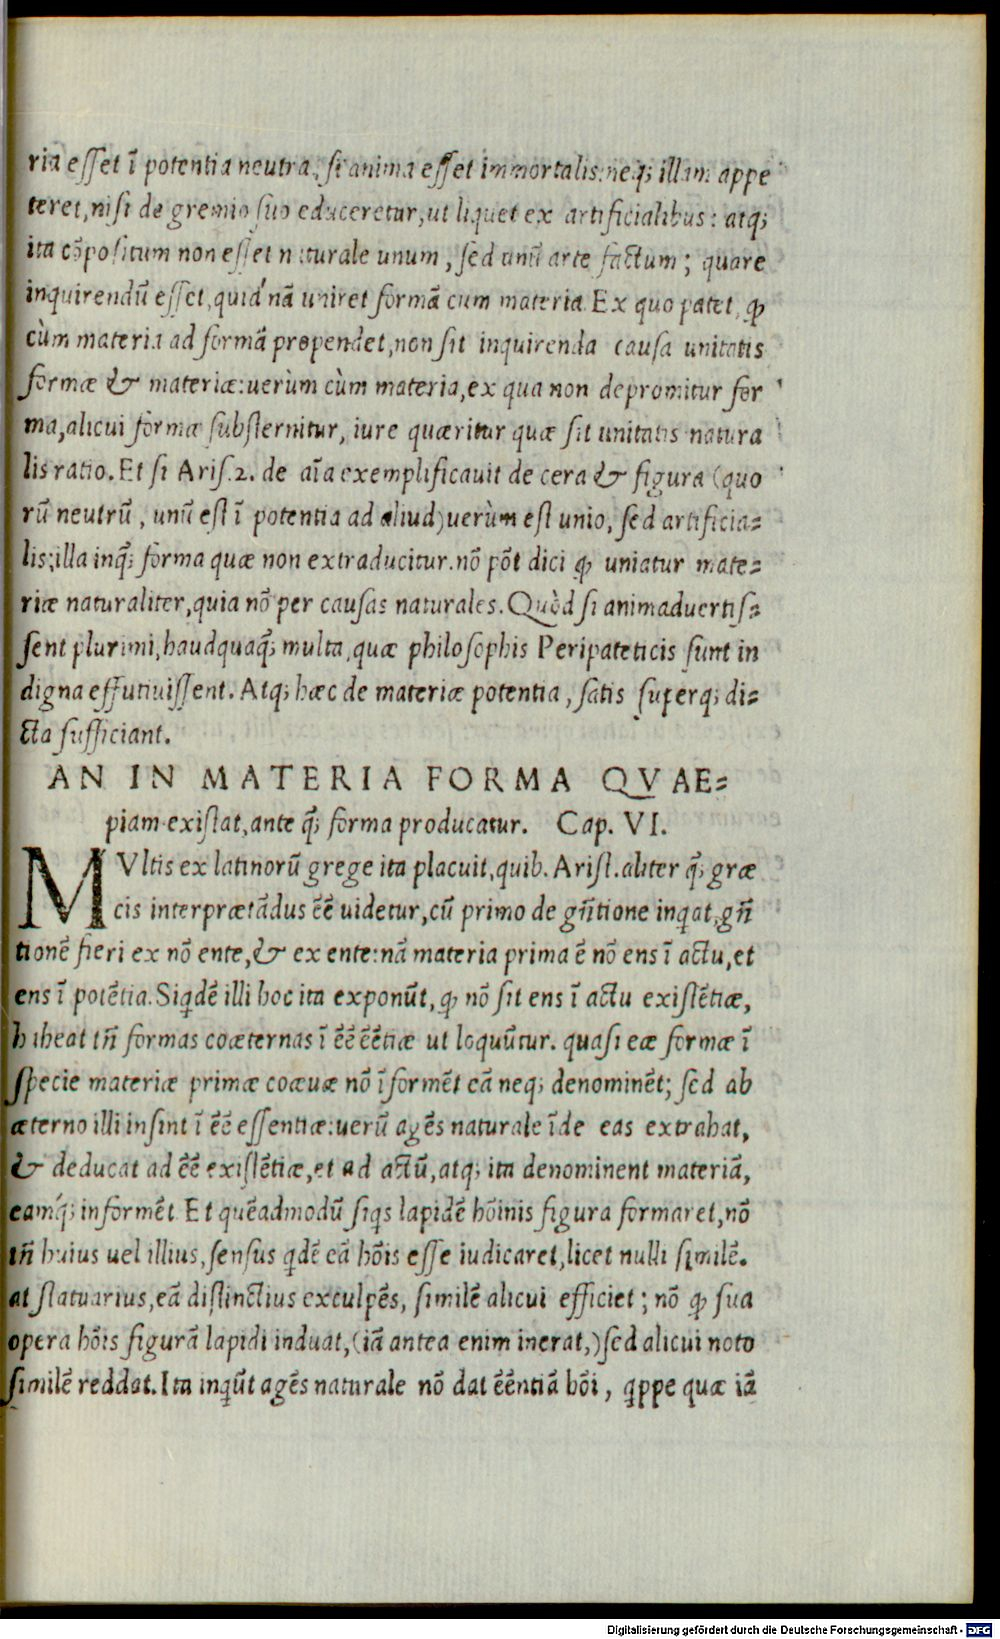 ria esset ī potentia neutra, si anima esset immortalis: neq; illam appe
teret, nisi de gremio suo educeretur, ut liquet ex artificialibus: atq;
ita cōpositum non esset naturale unum, sed unū arte factum; quare
inquirendū esset, quid nā uniret formā cum materia. Ex quo patet, ꝙ
cùm materia ad formā propendet, non sit inquirenda causa unitatis
formæ & materiæ: uerùm cùm materia, ex qua non depromitur for
ma, alicui formæ substernitur, iure quæritur quæ sit unitatis natura
lis ratio. Et si Aris. 2. de aīa exemplificauit de cera & figura (quo
rū neutrū, unū est ī potentia ad aliud) uerùm est unio, sed artificia=
lis; illa inq̃; forma quæ non extraducitur. nō pōt dici ꝙ uniatur mate=
riæ naturaliter, quia nō per causas naturales. Quòd si animaduertis=
sent plurimi, haudquaq̃; multa, quæ philosophis Peripateticis sunt in
digna effutiuissent. Atq; hæc de materiæ potentia, satis superq; di=
cta sufficiant.
AN IN MATERIA FORMA QVAE=
piam existat, ante q̃; forma producatur. Cap. VI.
MVltis ex latinorū grege ita placuit, quib. Arist. aliter q̃; græ
cis interprætādus ēē uidetur, cū primo de gn̄tione inqat, gn̄
tionē fieri ex nō ente, & ex ente: nā materia prima ē nō ens ī actu, et
ens ī potētia. Siqdē illi hoc ita exponūt, ꝙ nō sit ens ī actu existētiæ,
habeat tn̄ formas coæternas ī ēē ēētiæ ut loquūtur. quasi eæ formæ ī
specie materiæ primæ coæuæ nō īformēt eā neq; denominēt; sed ab
æterno illi insint ī ēē essentiæ: uerū agēs naturale īde eas extrahat,
& deducat ad ēē existētiæ, et ad actū, atq; ita denominent materiā,
eamq́; informēt. Et quēadmodū siqs lapidē hōinis figura formaret, nō
tn̄ huius uel illius, sensus qdē eā hōis esse iudicaret, licet nulli similē.
at statuarius, eā distinctius exculpēs, similē alicui efficiet; nō ꝙ sua
opera hōis figurā lapidi induat, (iā antea enim inerat,) sed alicui noto
similē reddat. Ita inquīt agēs naturale nō dat ēēntiā hōi, qppe quæ iā
Digitalisierung gefördert durch die Deutsche Forschungsgemeinschaft - DFG